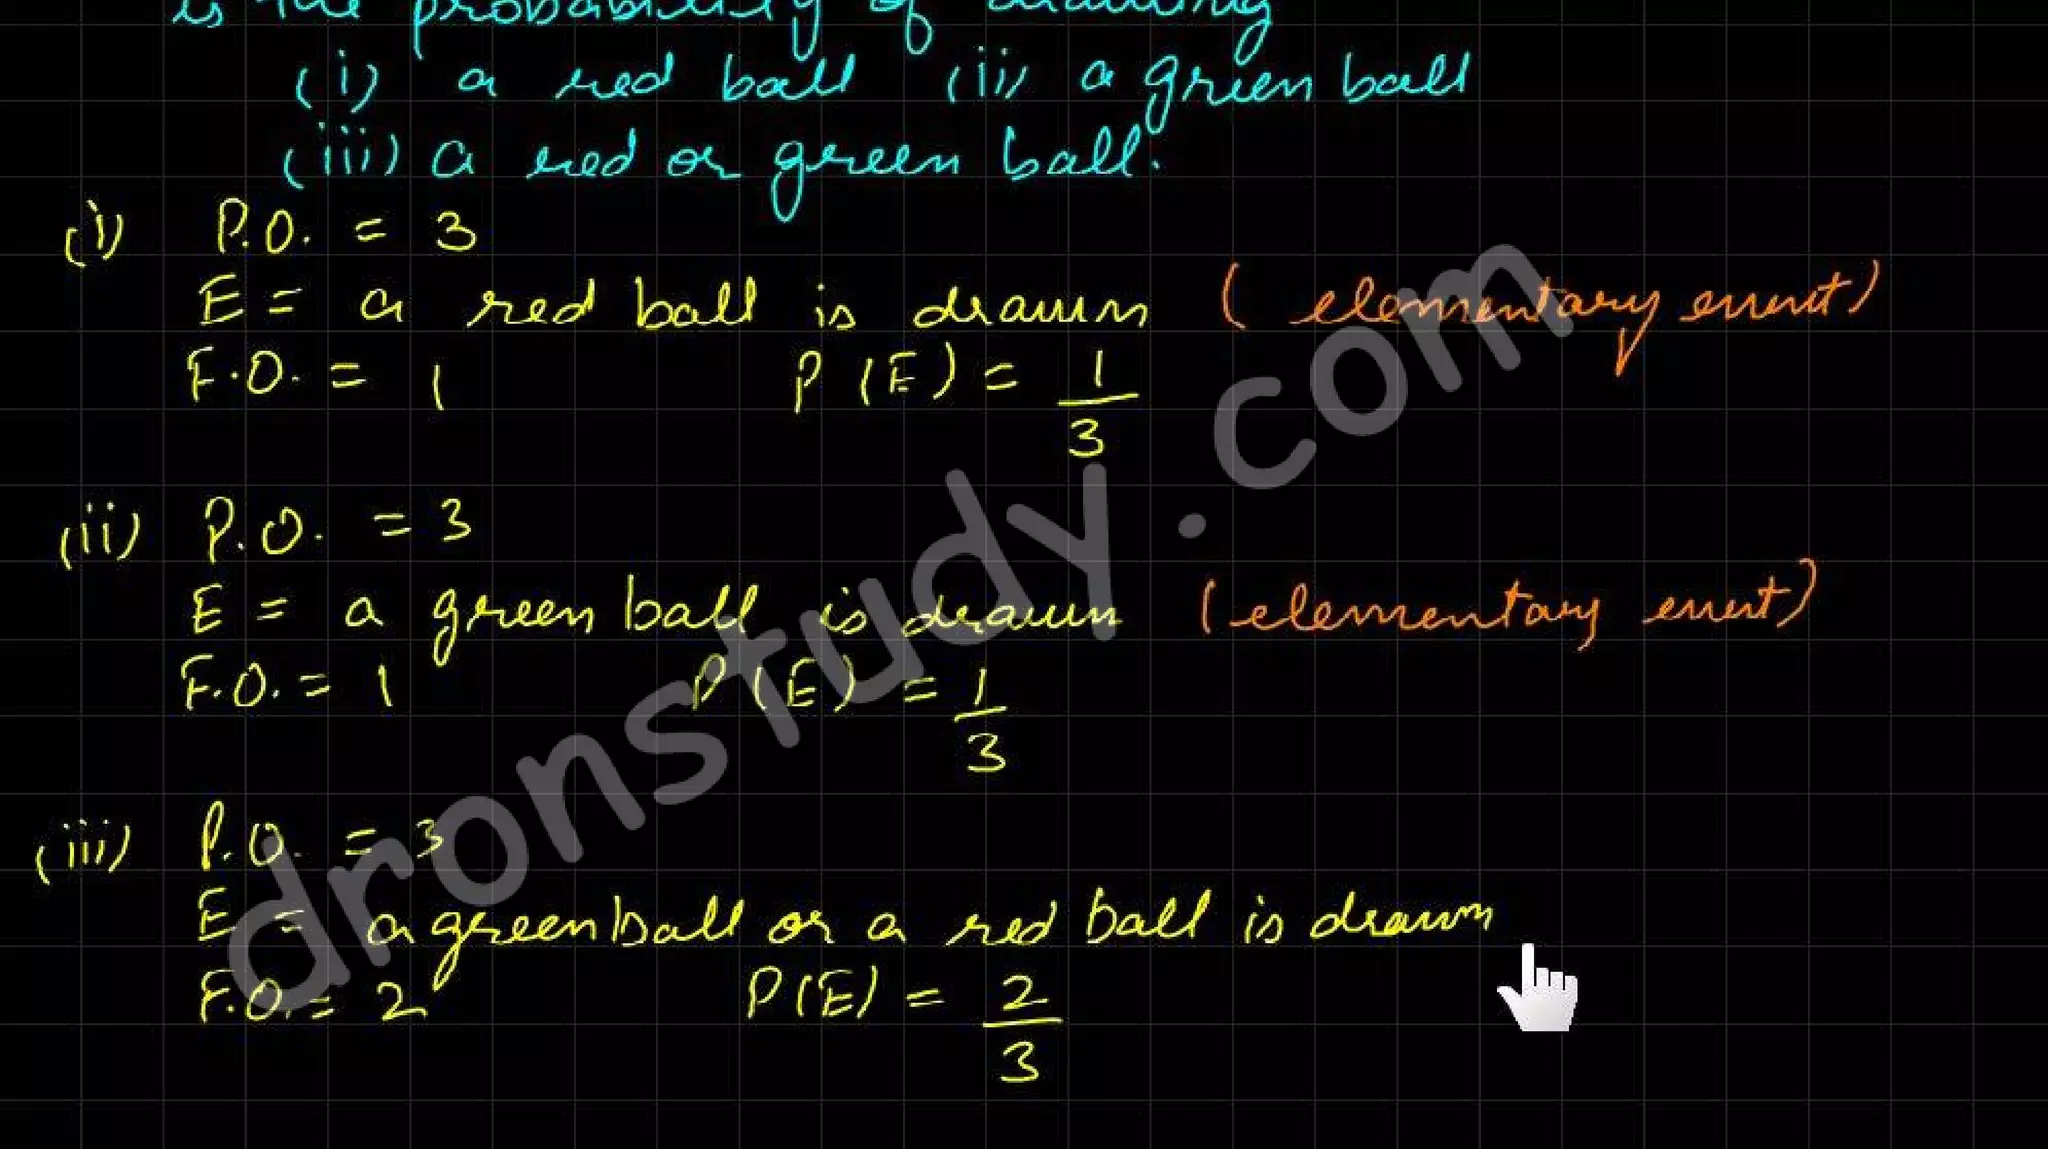 is the probability of drawing
(i) a red ball (ii) a green ball
(iii) a red or green ball.
(i) P.O. = 3
E = a red ball is drawn (elementary event)
F.O. = 1 P(E) = 1/3
(ii) P.O. = 3
E = a green ball is drawn (elementary event)
F.O. = 1 P(E) = 1/3
(iii) P.O. = 3
E = a green ball or a red ball is drawn
F.O. = 2 P(E) = 2/3
dronstudy.com